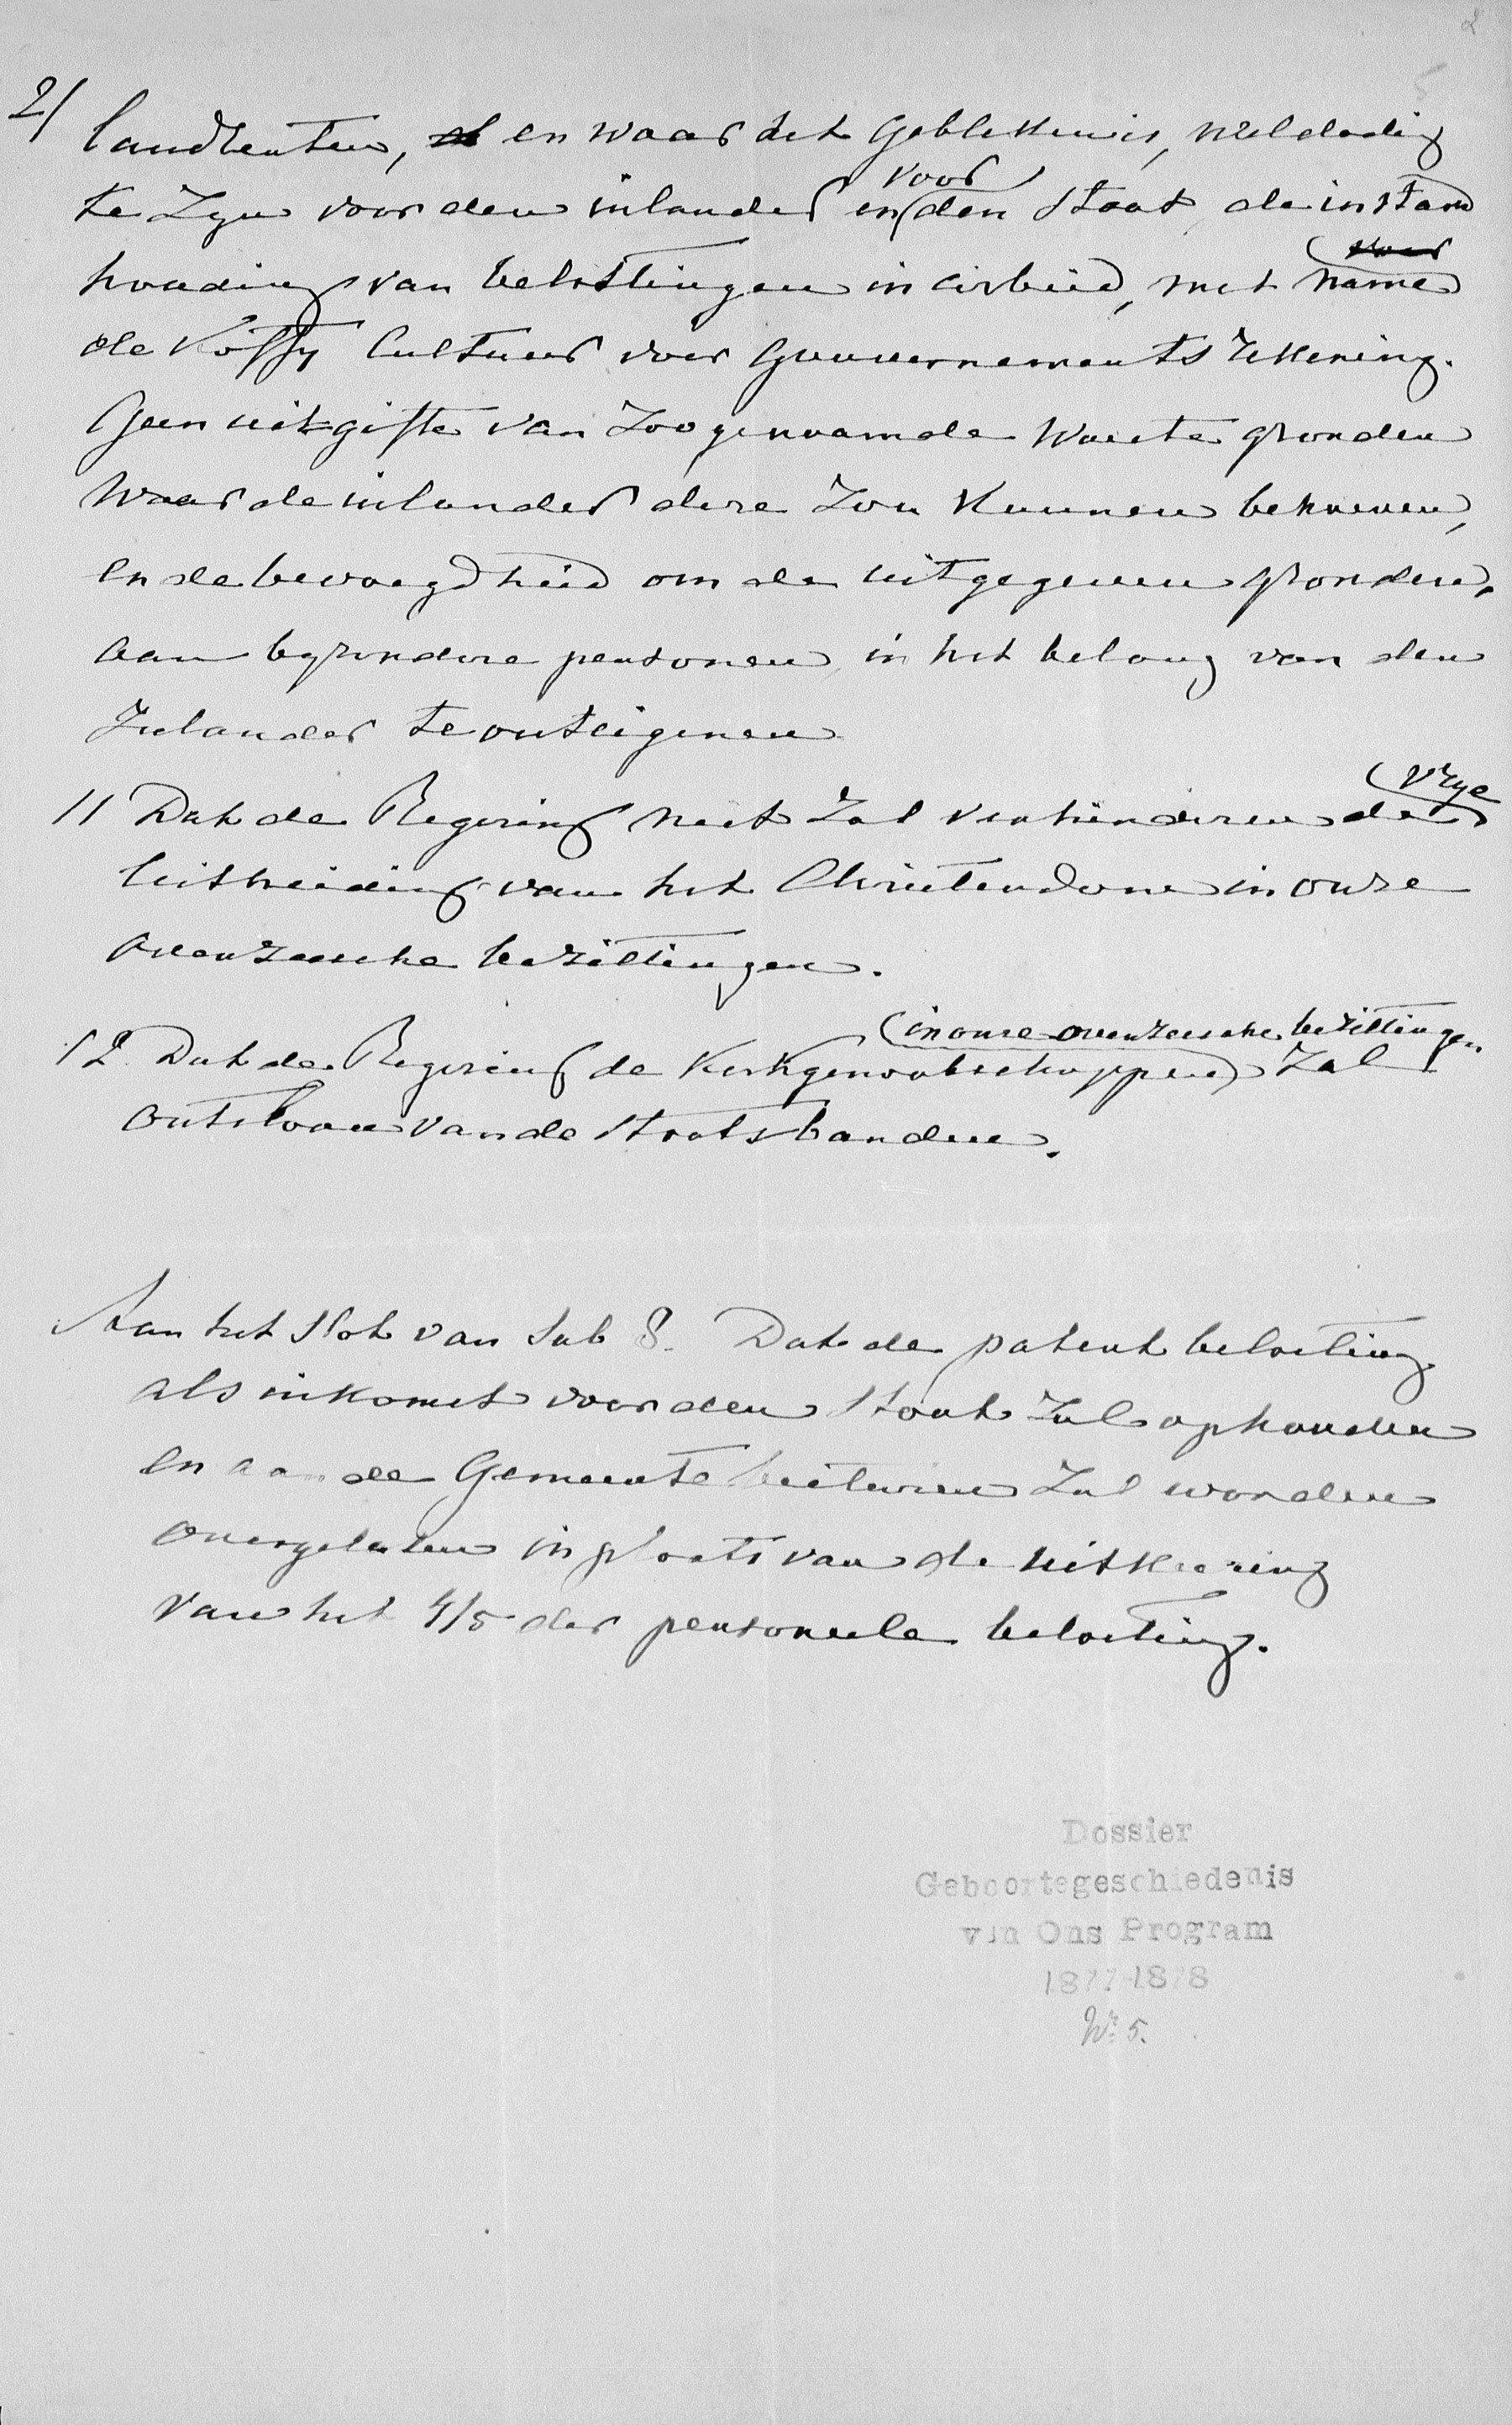 2
2/
landrenten, en waar het gebleken is, weldadig
te zyn voor den inlander en voor den Staat, de instand
houding van belastingen in arbeid, met name
de Koffy Cultuur voor Gouvernements rekening.
Geen uitgifte van zoogenaamde woeste gronden
waar de inlander deze zou kunnen behoeven,
en de bevoegdheid om de uitgegeven gronden,
aan byzondere personen in het belang van den
Inlander te onteigenen
11 Dat de Regering niet zal verhinderen de vrye
uitbreiding van het Christendom in onze
overzeesche bezittingen.
12 Dat de Regering de Kerkgenootschappen in onze overzeesche bezittingen zal
ontslaan van de Staatsbanden.
Aan het slot van sub 8. Dat de patent belasting
als inkomst voor den Staat zal ophouden
en aan de Gemeente besturen zal worden
overgelaten in plaats van de uitkeering
van het 4/5 der personeele belasting.
Dossier
Geboortegeschiedenis
van Ons Program
1877-1878
No 5.